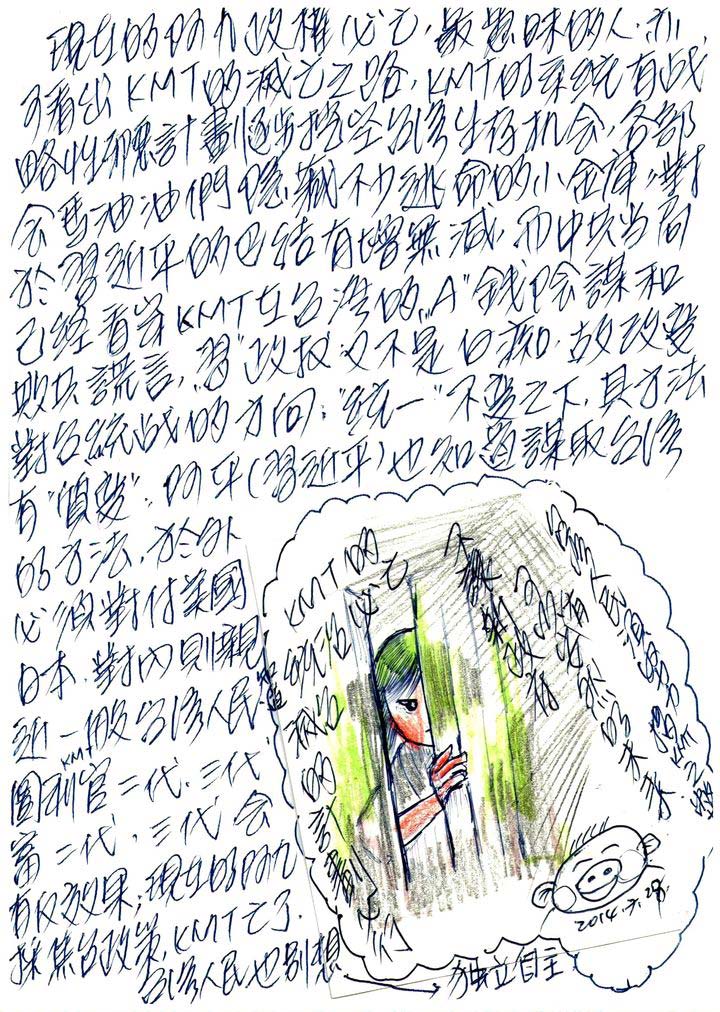 現在的阿九政權必亡,最愚昧的人,亦
可看出KMT的滅亡之路,KMT的系統有战
略性邪惡計畫逐步挖空台湾生存机会,各部
会馬油油們隐藏不少逃命的小金庫,對
於習近平的巴结有增無減,而中共当局
已经看穿KMT在台湾的"A"錢陰謀和
欺共謊言,"習"政权又不是白痴,故改变
對台統战的方向:"統一"不变之下,其方法
有"質变":阿平(習近平)也知道謀取台湾
的方法,於外
必須對付美國
日本,對內則親
近一般台湾人民
圖利KMT官二代、三代
富二代、三代会
有反效果;現在的阿九
採集台政策,KMT亡了.
台湾人民也別想
独立自主
KMT的
統治必亡
2014.7.28.